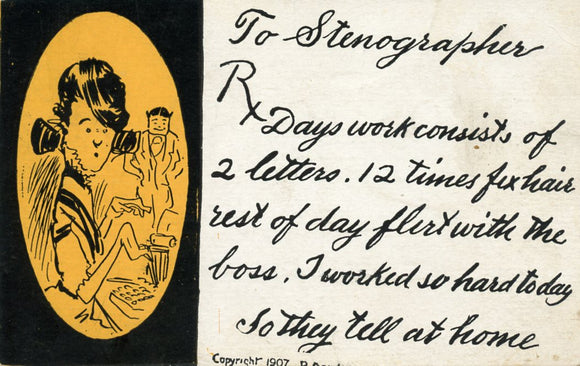 To Stenographer
Rx
Days work consists of
2 letters. 12 times fix hair
rest of day flirt with the
boss. I worked so hard today
So they tell at home
Copyright 1907